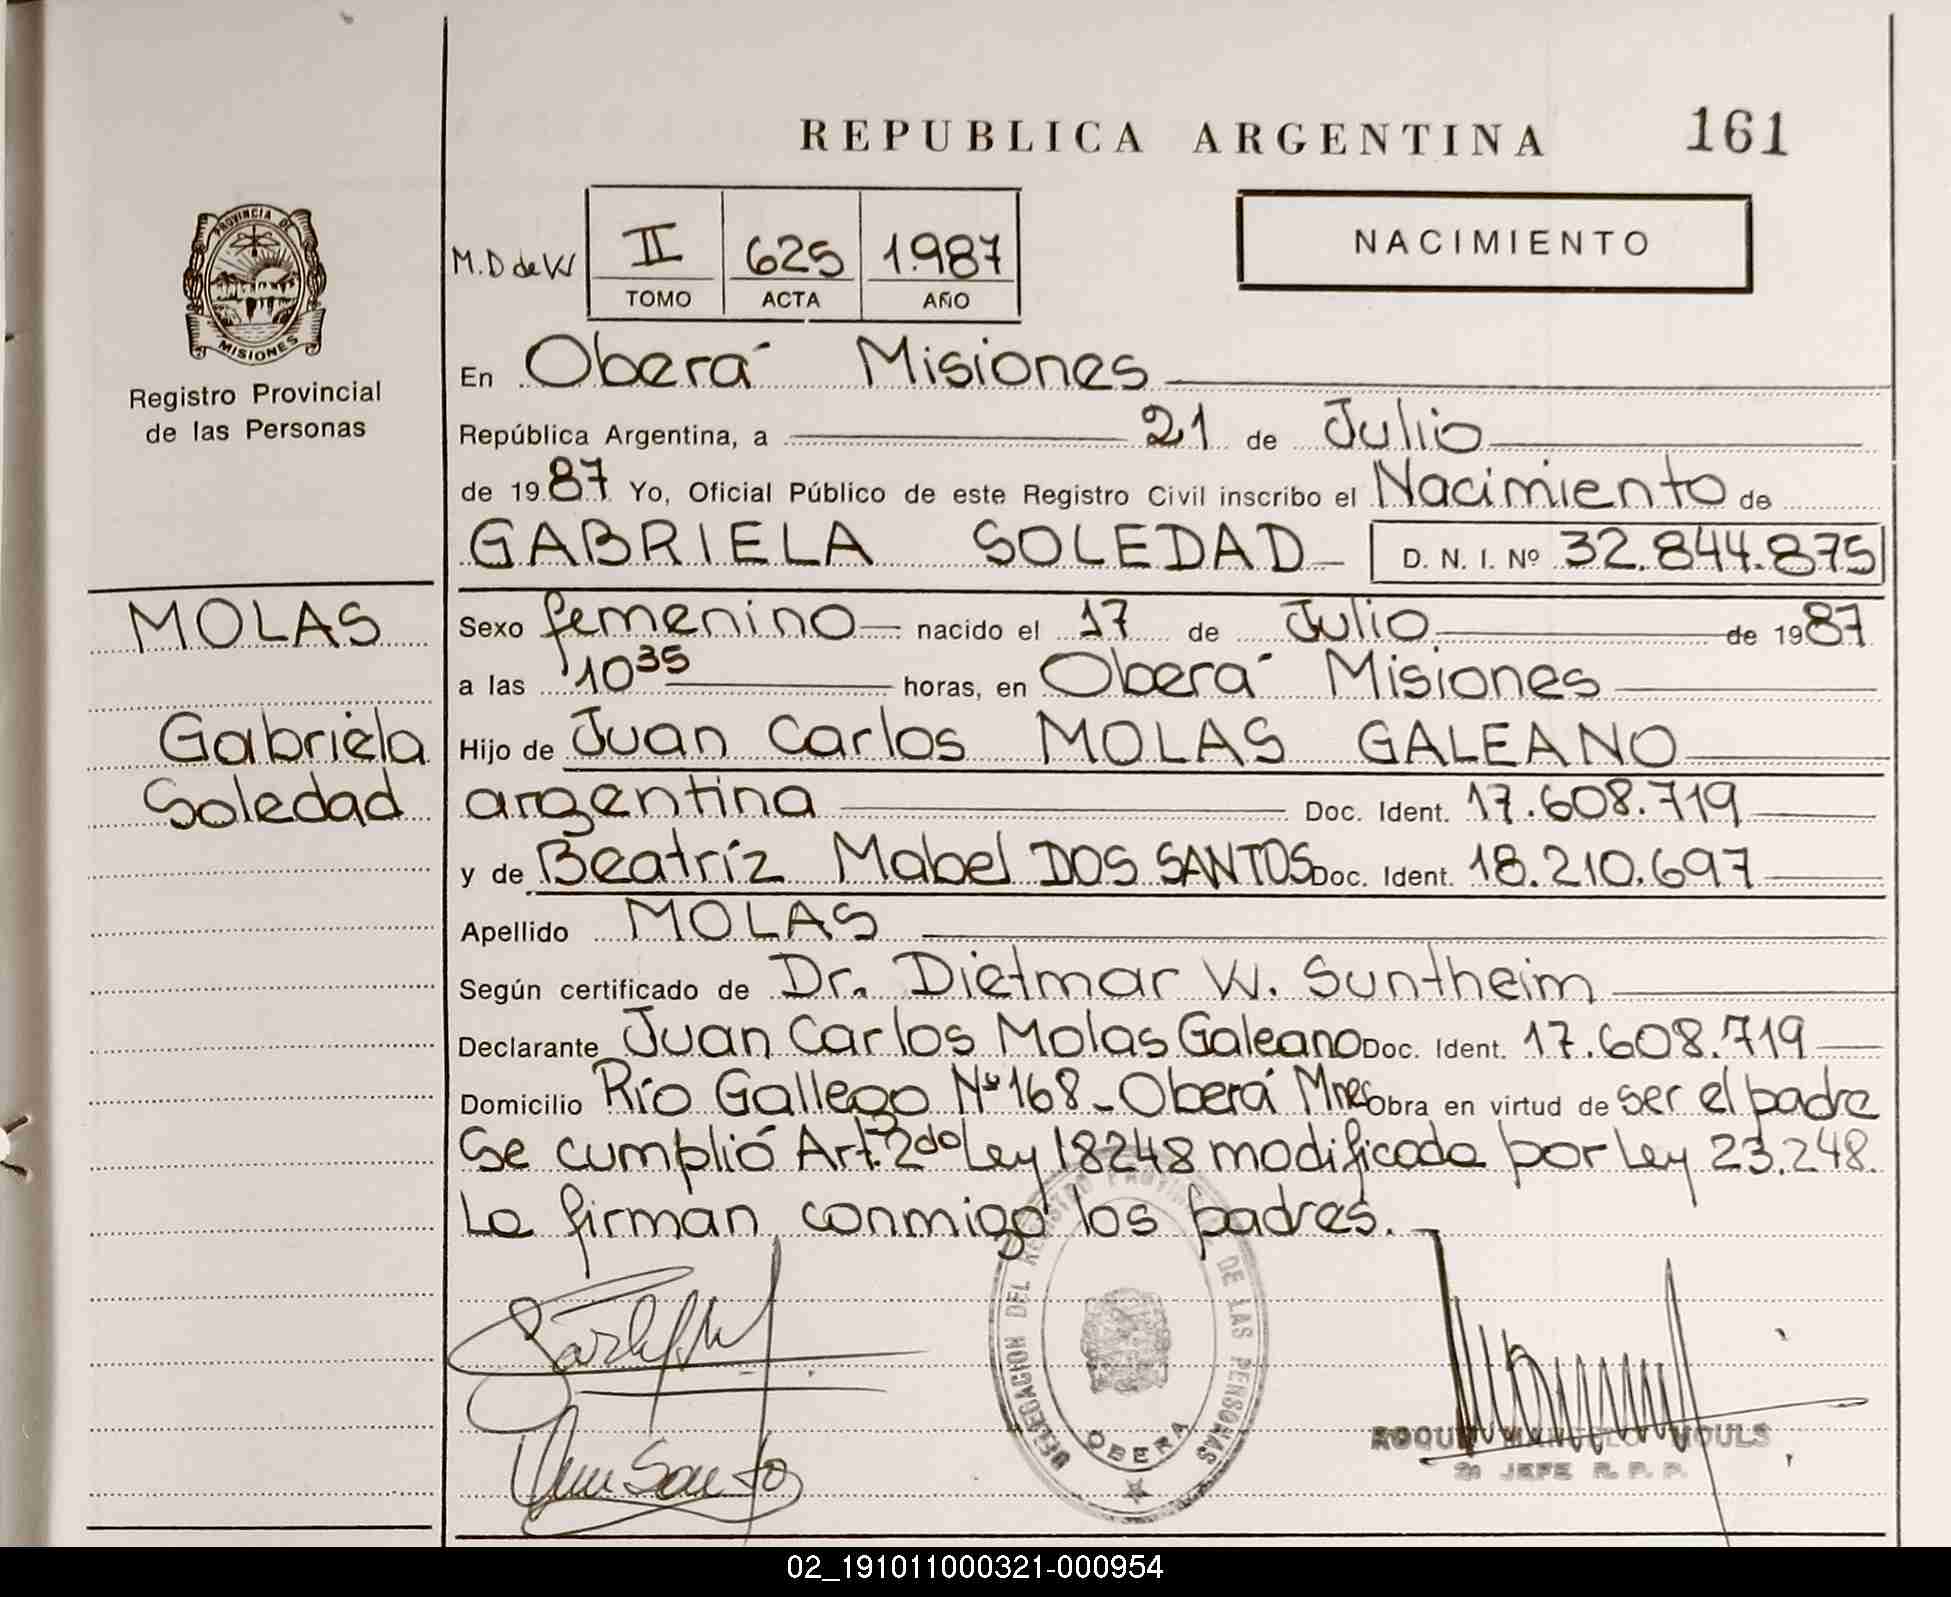 REPUBLICA ARGENTINA 161
NACIMIENTO
M.D de W II 625 1.987
TOMO ACTA AÑO
PROVINCIA DE
MISIONES
Registro Provincial
de las Personas
MOLAS
Gabriela
Soledad
En Oberá Misiones
República Argentina, a 21 de Julio
de 1987 Yo, Oficial Público de este Registro Civil inscribo el Nacimiento de
GABRIELA SOLEDAD D. N. I. Nº 32.844.875
Sexo femenino nacido el 17 de Julio de 1987
a las 10 35 horas, en Oberá Misiones
Hijo de Juan Carlos MOLAS GALEANO
argentina Doc. Ident. 17.608.719
y de Beatríz Mabel DOS SANTOS Doc. Ident. 18.210.697
Apellido MOLAS
Según certificado de Dr. Dietmar W. Suntheim
Declarante Juan Carlos Molas Galeano Doc. Ident. 17.608.719
Domicilio Río Gallego Nº 168 - Oberá Mnes Obra en virtud de ser el padre
Se cumplió Art. 2do Ley 18248 modificada por Ley 23.248.
La firman conmigo los padres.
DELEGACION DEL REGISTRO PROVINCIAL DE LAS PERSONAS
OBERA
JEFE R. P. P.
02_191011000321-000954